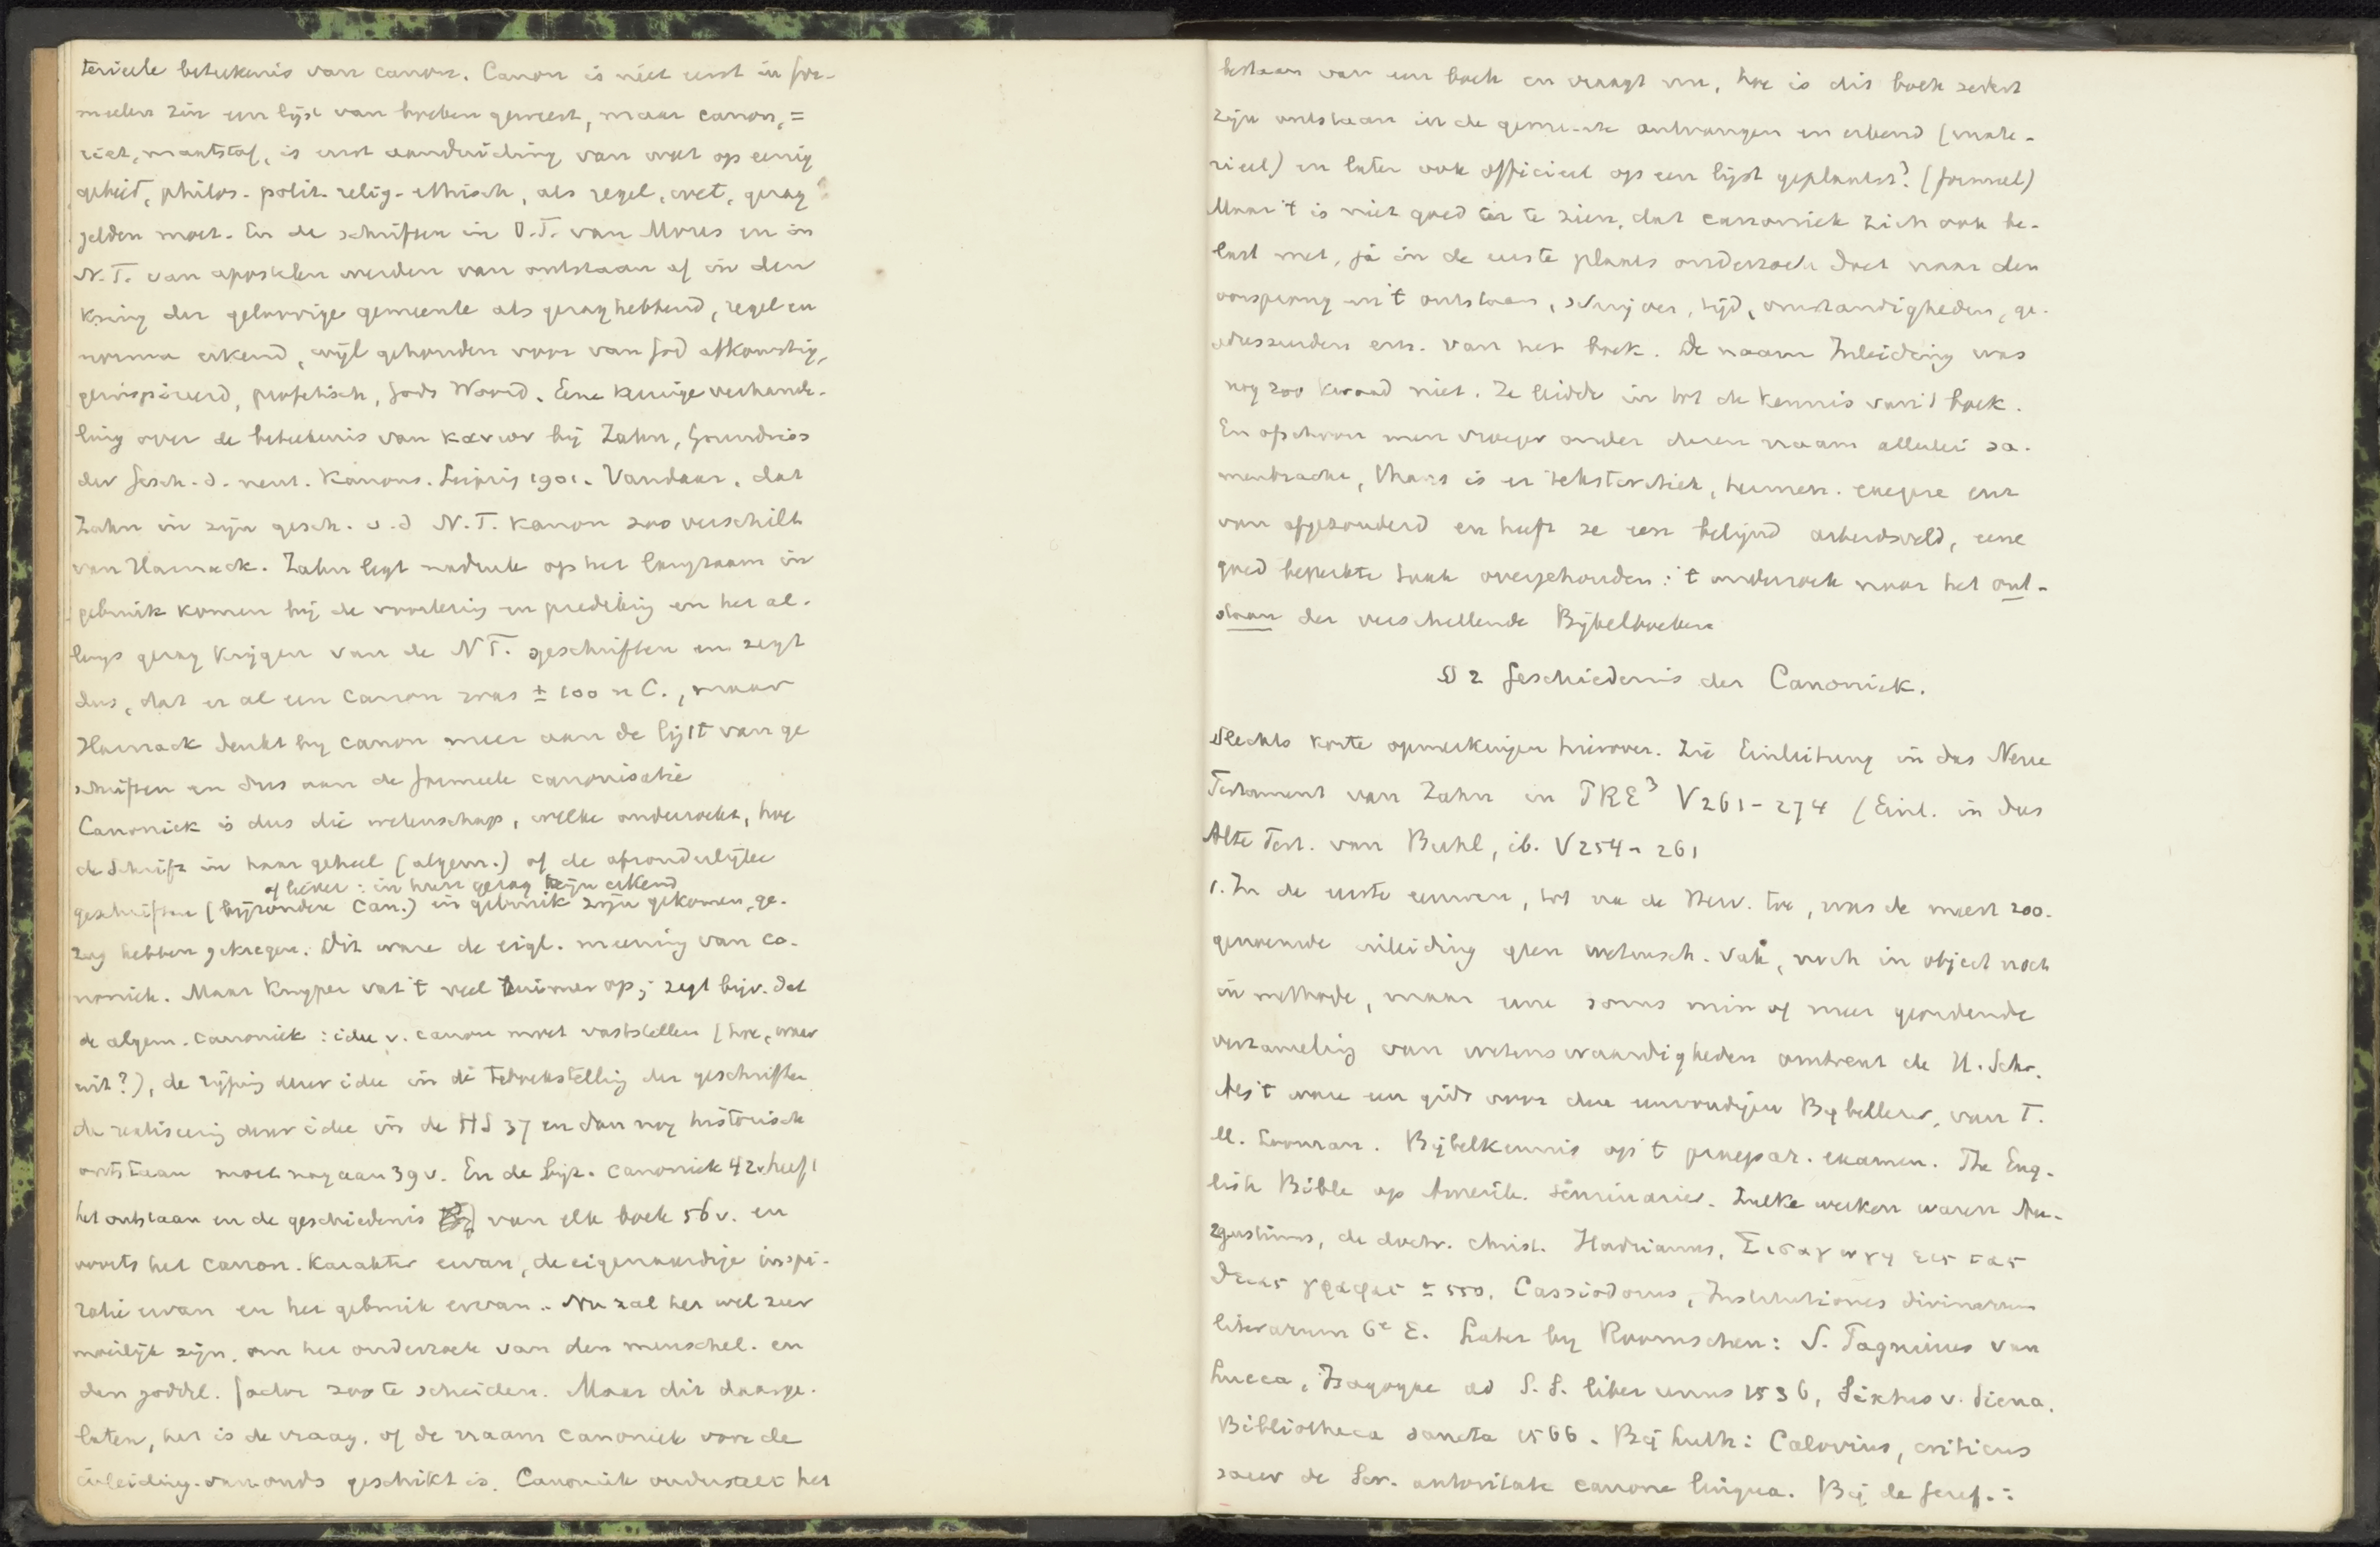 terieele betekenis van canon. Canon is niet eerst in for-
meelen zin een lijst van boeken geweest, maar canon, =
riet, maatstaf, is eerst aanduiding van wat op eenig
gebied, philos. polit. relig. ethisch, als regel, wet, gezag
gelden moet. En de schriften in O.T. van Mozes en in
N.T. van apostelen werden van ontstaan af in den
kring der geloovige gemeente als gezaghebbend, regel en
norma erkend, wijl gehouden voor van God afkomstig,
geinspireerd, profetisch, Gods Woord. Eene keurige verhande-
ling over de betekenis van κανων bij Zahn, Grundriss
der Gesch. d. neut. Kanons. Leipzig 1901. Vandaar, dat
Zahn in zijn gesch. v.d N.T. kanon zoo verschilt
van Harnack. Zahn legt nadruk op het langzaam in
gebruik komen bij de voorlezing en prediking en het al-
lengs gezag krijgen van de NT. geschriften en zegt
dus, dat er al een canon was ± 100 n C., maar
Harnack denkt bij canon meer aan de lijst van ge
schriften en dus aan de formeele canonisatie
Canoniek is dus die wetenschap, welke onderzoekt, hoe
de Schrift in haar geheel (algem.) of de afzonderlijke
of liever: in hun gezag zijn erkend
geschriften (bijzondere Can.) in gebruik zijn gekomen, ge-
zag hebben gekregen. Dit ware de eigl. meening van ca-
noniek. Maar Kuyper vat 't veel ruimer op; zegt bijv. dat
de algem. canoniek: idee v. canon moet vaststellen (hoe, waar
uit?), de rijping dezer idee in de teboekstelling der geschriften
de realiseering dezer idee in de HS 37 en dan nog historisch
ontstaan moet nagaan 39 v. En de bijz. canoniek 42v. heeft
het ontstaan en de geschiedenis van elk boek 56 v. en
voorts het canon. karakter ervan, de eigenaardige inspi-
ratie ervan en het gebruik ervan. Nu zal het wel zeer
moeilijk zijn, om het onderzoek van den menschel. en
den goddel. factor zoo te scheiden. Maar dit daarge-
laten, het is de vraag, of de naam canoniek voor de
inleiding van ouds geschikt is. Canoniek onderstelt het
bestaan van een boek en vraagt nu, hoe is dit boek sedert
zijn ontstaan in de gemeente ontvangen en erkend (mate-
rieel) en later ook officieel op een lijst geplaatst? (formeel)
Maar 't is niet goed in te zien, dat canoniek zich ook be-
last met, ja in de eerste plaats onderzoek doet naar den
oorsprong en 't ontstaan, schrijver, tijd, omstandigheden, ge-
adresseerden enz. van het boek. De naam Inleiding was
nog zoo kwaad niet. Ze leidde in tot de kennis van 't boek.
En ofschoon men vroeger onder dezen naam allerlei sa-
menbracht, thans is er tekstcritiek, hermen. exegese enz
van afgezonderd en heeft ze een belijnd arbeidsveld, eene
goed beperkte taak overgehouden: 't onderzoek naar het ont-
staan der verschillende Bijbelboeken
§ 2 Geschiedenis der Canoniek.
Slechts korte opmerkingen hierover. Zie Einleitung in das Neue
Testament van Zahn in PRE³ V 261-274 (Einl. in das
Alte Test. van Buhl, ib. V 254-261
1. In de eerste eeuwen, tot na de Herv. toe, was de meest zoo-
genaamde inleiding geen wetensch. vak, noch in object noch
in methode, maar eene soms min of meer geordende
verzameling van wetenswaardigheden omtrent de H. Schr.
't ware een gids voor den eenvoudigen Bijbellezer, van T.
M. Looman. Bijbelkennis op 't praepar. examen. The Eng-
lish Bible op Amerik. seminaries. Zulke werken waren Au-
gustinus, de doctr. christ. Hadrianus, Εισαγωγη εις τας
θειας γραφας ± 550. Cassiodorus, Institutiones divinarum
literarum 6e E. Later bij Roomschen: S. Pagninus van
Lucca, Isagogae ad S. S. liber unus 1536, Sixtus v. Siena.
Bibliotheca sancta 1566. Bij Luth: Calovius, criticus
sacer de Scr. autoritate canone lingua. Bij de Geref.: